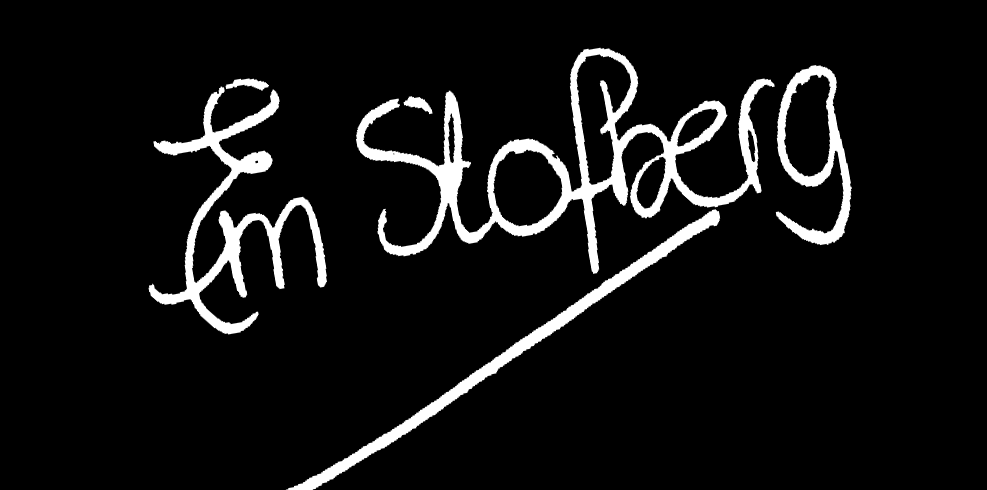 Em Stofberg